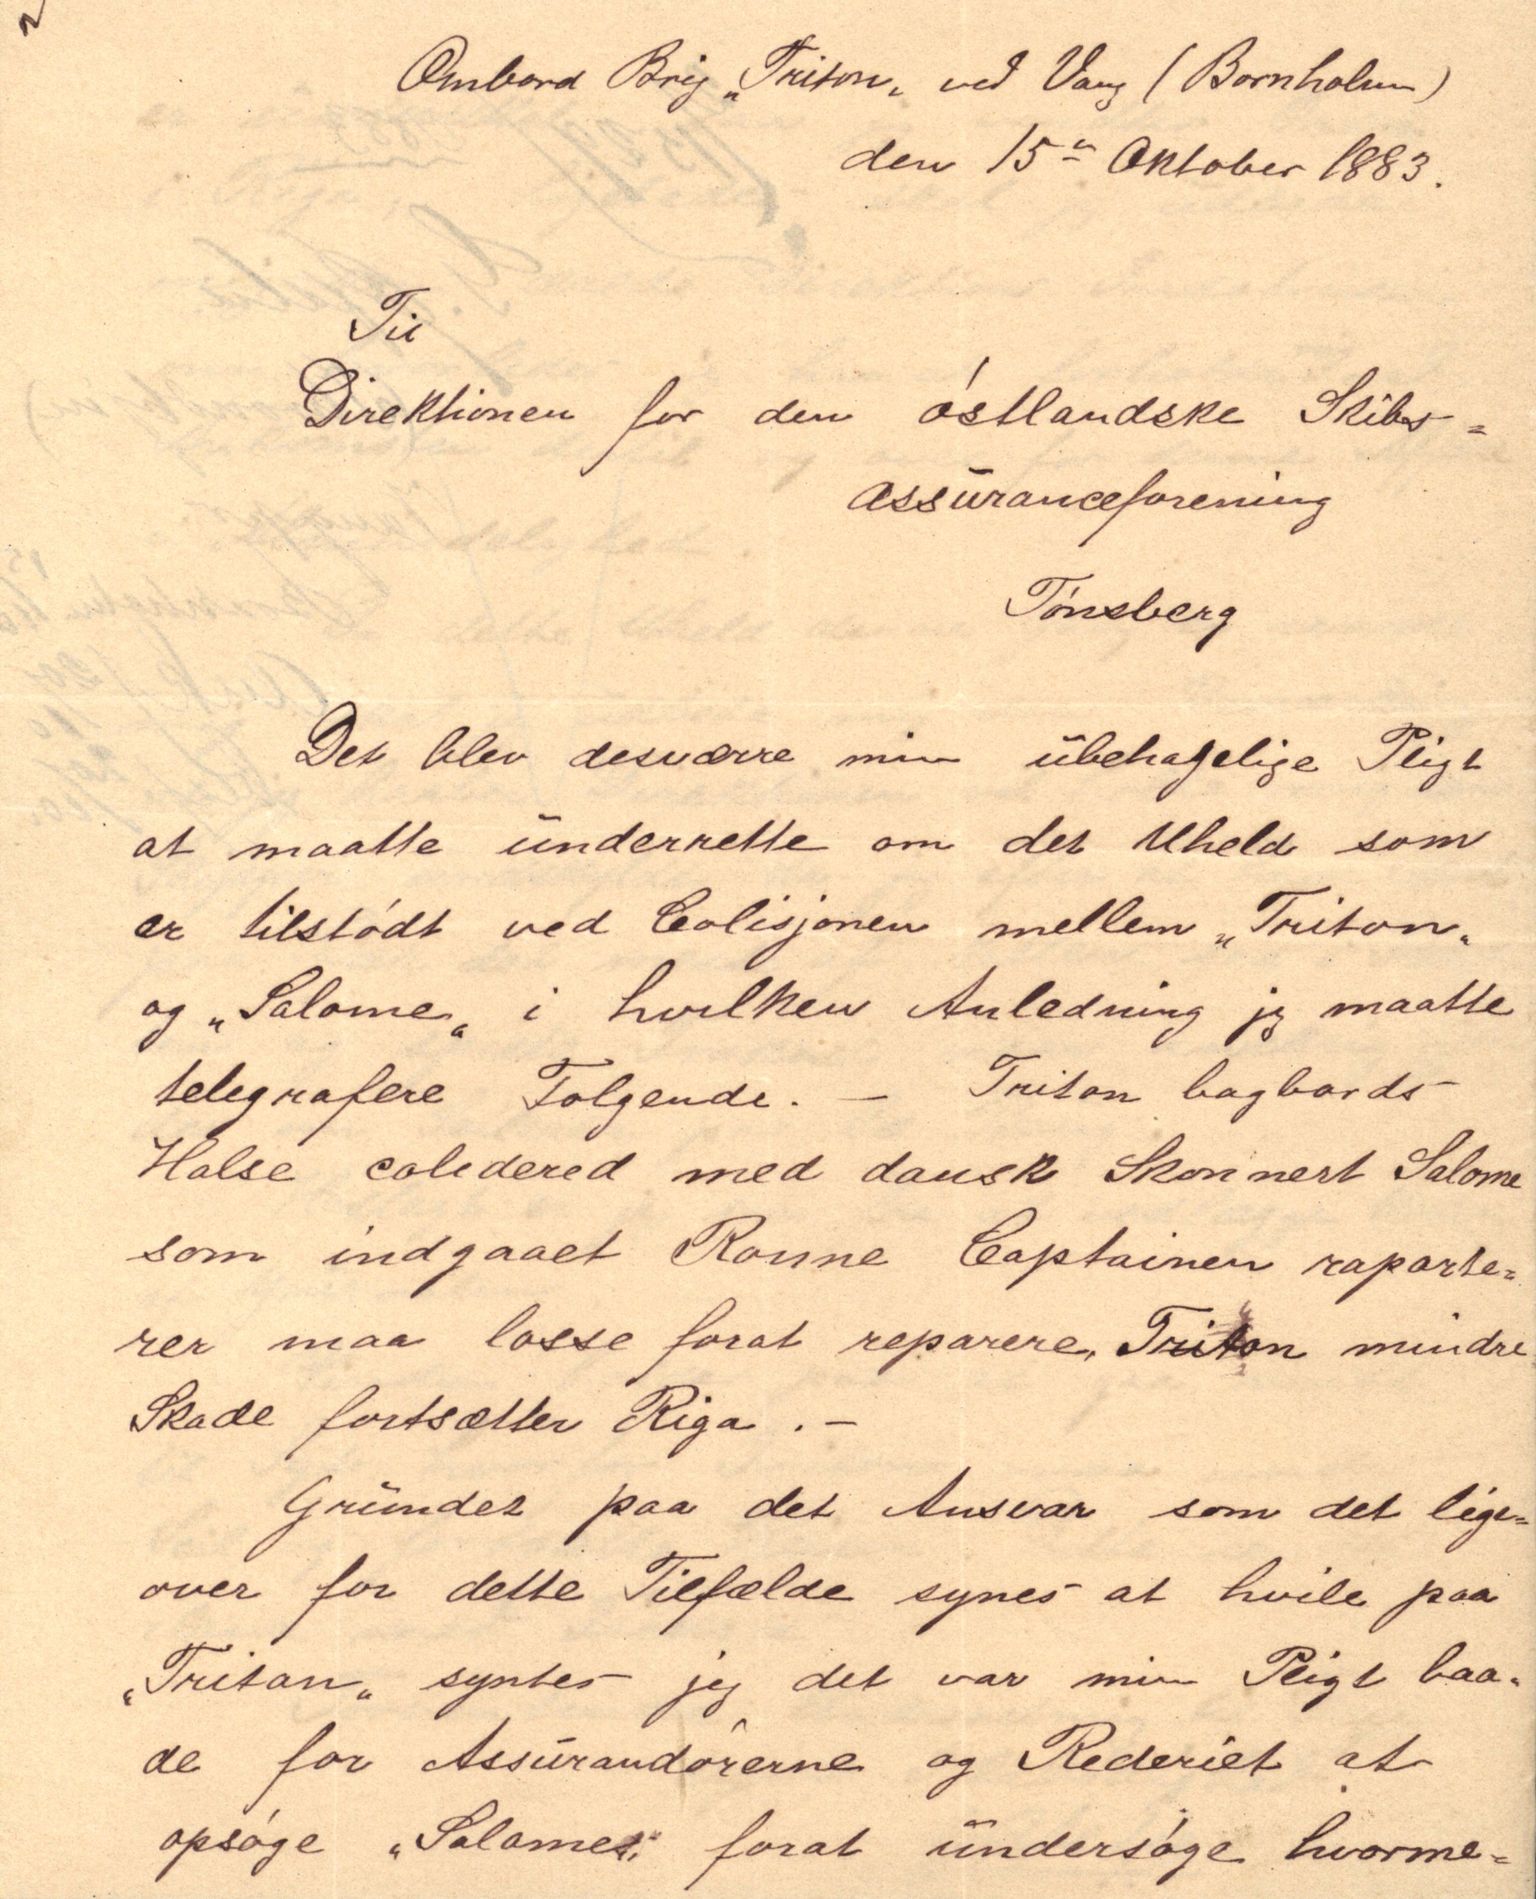 Ombord Brig „Triton„ ved Vang (Bornholm)
den 15de Oktober 1883.
Til
Direktionen for den östlandske Skibs=
assüranceforening
Tönsberg
Det blev desværre min übehagelige Pligt
at maatte ünderrette om det Uheld som
er tilstödt ved Colisjonen mellem „Triton„
og „Salome„ i hvilken Anledning jeg maatte
telegrafere Folgende. — Triton bagbords
Halse colidered med dansk Skonnert Salome
som indgaaet Ronne Captainen raporte=
rer maa losse forat reparere, Triton mindre
Skade fortsætter Riga . —
Gründet paa det Ansvar som det lige=
over for dette Tilfælde synes at hvile paa
„Triton„ syntes jeg det var min Pligt baa=
de for Assürandörerne og Rederiet at
opsöge „Salome„ forat ündersöge hvorme=